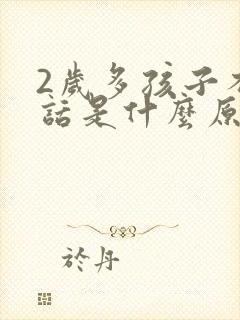 2歲多孩子不
話是什麼原
於丹